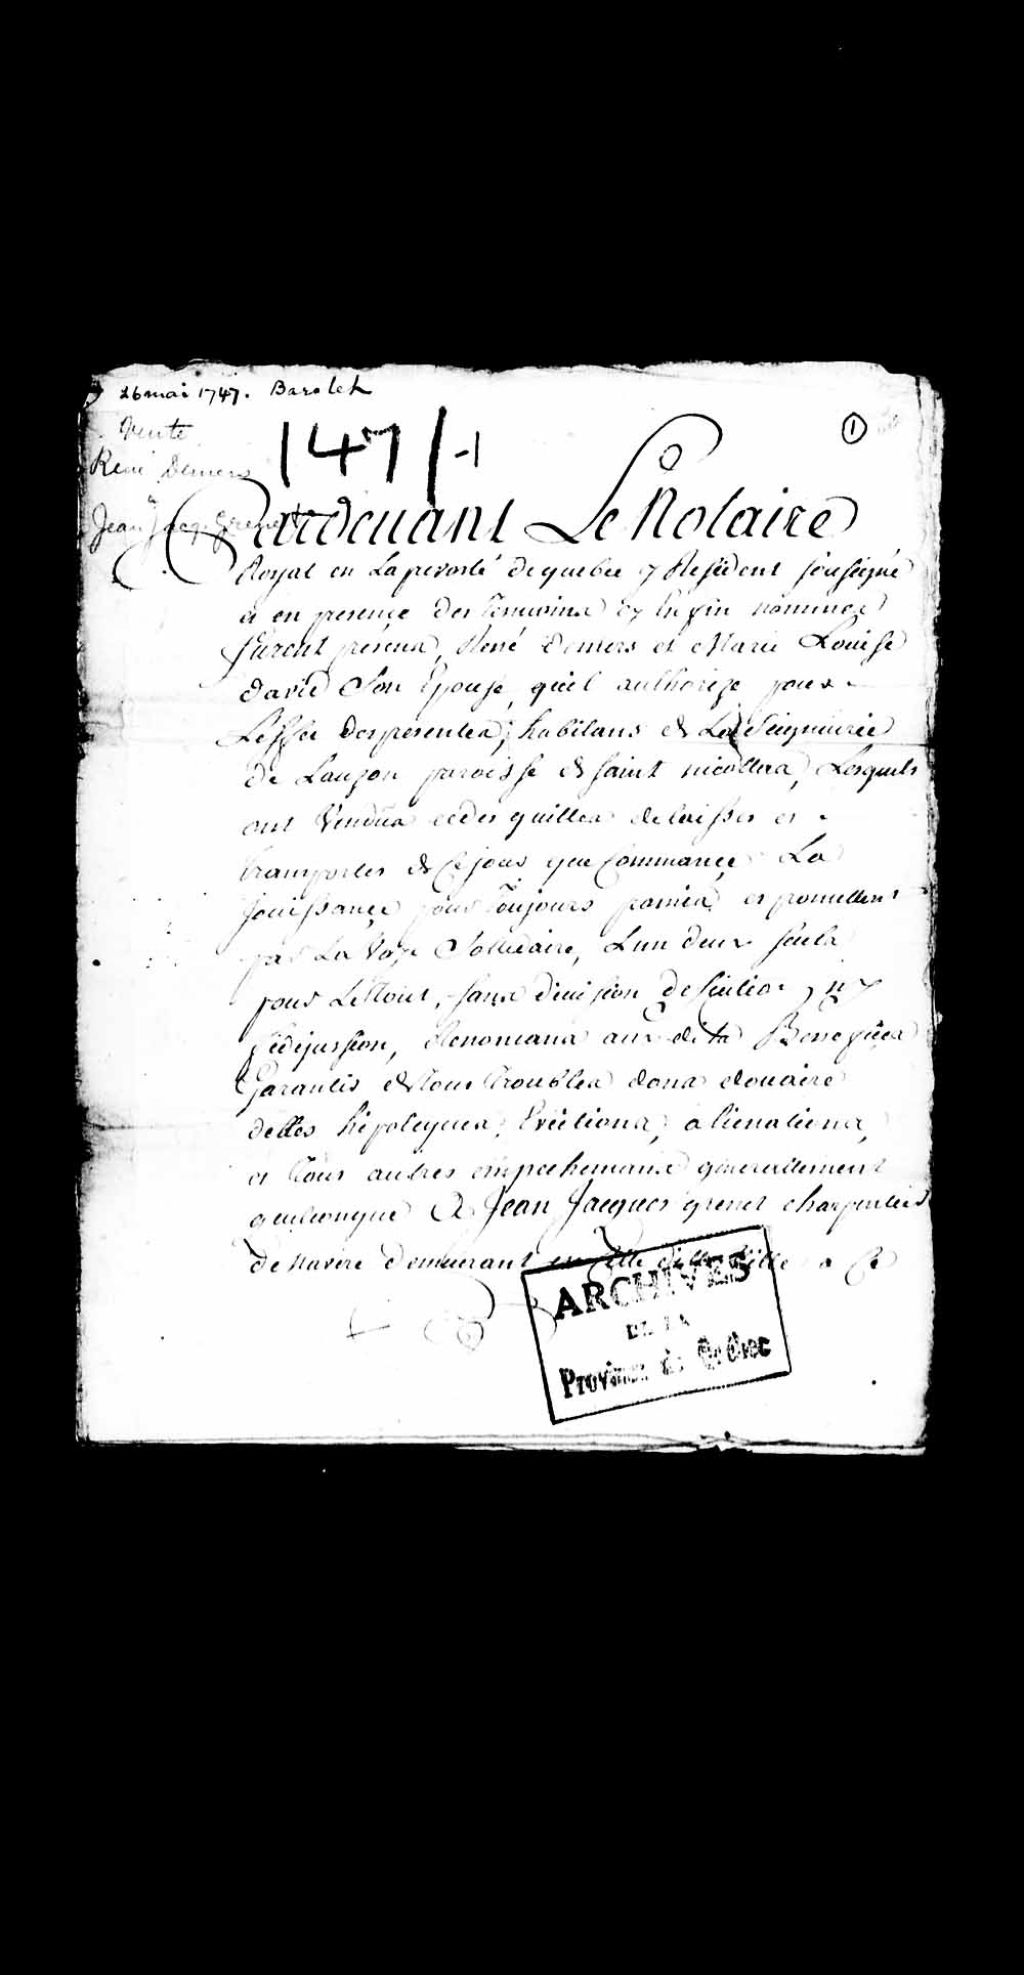 26 mai 1747. Barolet
Vente
René Demers
à
Jean Jacq. Grenet
147/-1
1
Pardevant Le Notaire
Royal en La prevosté de quebec y Resident sousigné
et en presence des temoins cy En fin nommez
furent présens, René demers et Marie Louise
david Son Epouse, qu'il authorize pour
Leffet des presentes, habitans de La Seigneurie
de Lauzon paroisse de saint nicollas, Lesquels
ont Vendus cedes quittes delaisses et
transportes de Ce jour que Commance La
jouissance pour toujours jamais, et promettent
par La Voye Sollidaire, Lun deux seul
pour Le tout, sans division discution, ny
fidejussion, Renonceans aux dits Benefices
Garantis de tous troubles dons douaire
dettes hipoteques, Evictions, alienations,
et tous autres empechemans generallement
quelconque A Jean Jacques grenet charpentier
de Navire demeurant en Cette ditte Ville a Ce
ARCHIVES
DE LA
Province de Québec